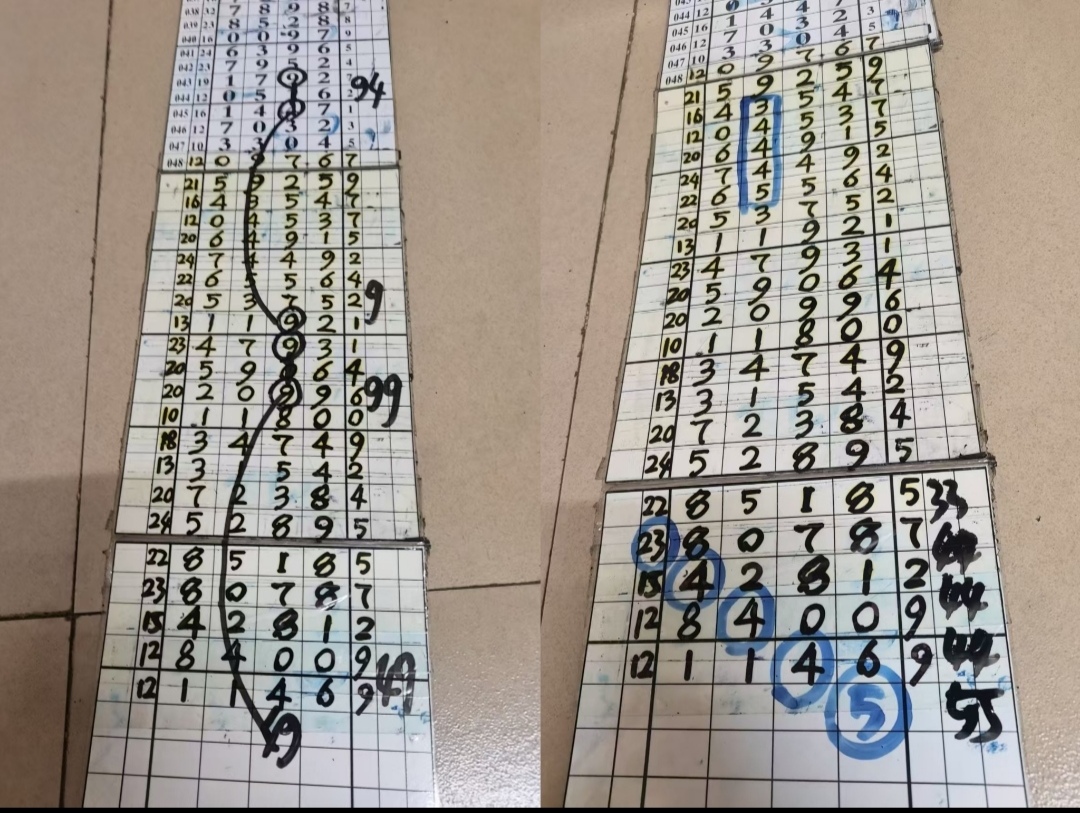 041 24 6 3 9 6 5
042 23 7 9 5 2 4
043 19 1 7 9 2
044 12 0 5 1 6 2 94
045 16 1 4 1 7
046 12 7 0 3 2 3
047 10 3 3 0 4 5
048 12 0 9 7 6 7
21 5 9 2 5 9
16 4 3 5 4 7
12 0 4 5 3 7
20 6 4 9 1 5
24 7 4 4 9 2
22 6 5 5 6 4
20 5 3 7 5 2 9
13 1 1 9 2 1
23 4 7 9 3 1
20 5 9 0 6 4
20 2 0 9 9 6 99
10 1 1 8 0 0
18 3 4 7 4 9
13 3 1 5 4 2
20 7 2 3 8 4
24 5 2 8 9 5
22 8 5 1 8 5
23 8 0 7 8 7
15 4 2 8 1 2
12 8 4 0 0 9
12 1 1 4 6 9 49
9
044 12 0 4
045 16 1 4 4 2 3
046 12 7 0 3 4 5
047 10 3 3 0 6 7
048 12 0 9 7 5 9
21 5 9 2 4 7
16 4 3 5 3 7
12 0 4 5 1 5
20 6 4 9 9 2
24 7 4 4 6 4
22 6 5 5 5 2
20 5 3 7 2 1
13 1 1 9 3 1
23 4 7 9 6 4
20 5 9 0 9 6
20 2 0 9 0 0
10 1 1 8 4 9
18 3 4 7 4 2
13 3 1 5 8 4
20 7 2 3 9 5
24 5 2 8
22 8 5 1 8 5 33
23 8 0 7 8 7 44
15 4 2 8 1 2 44
12 8 4 0 0 9 44
12 1 1 4 6 9 55
5